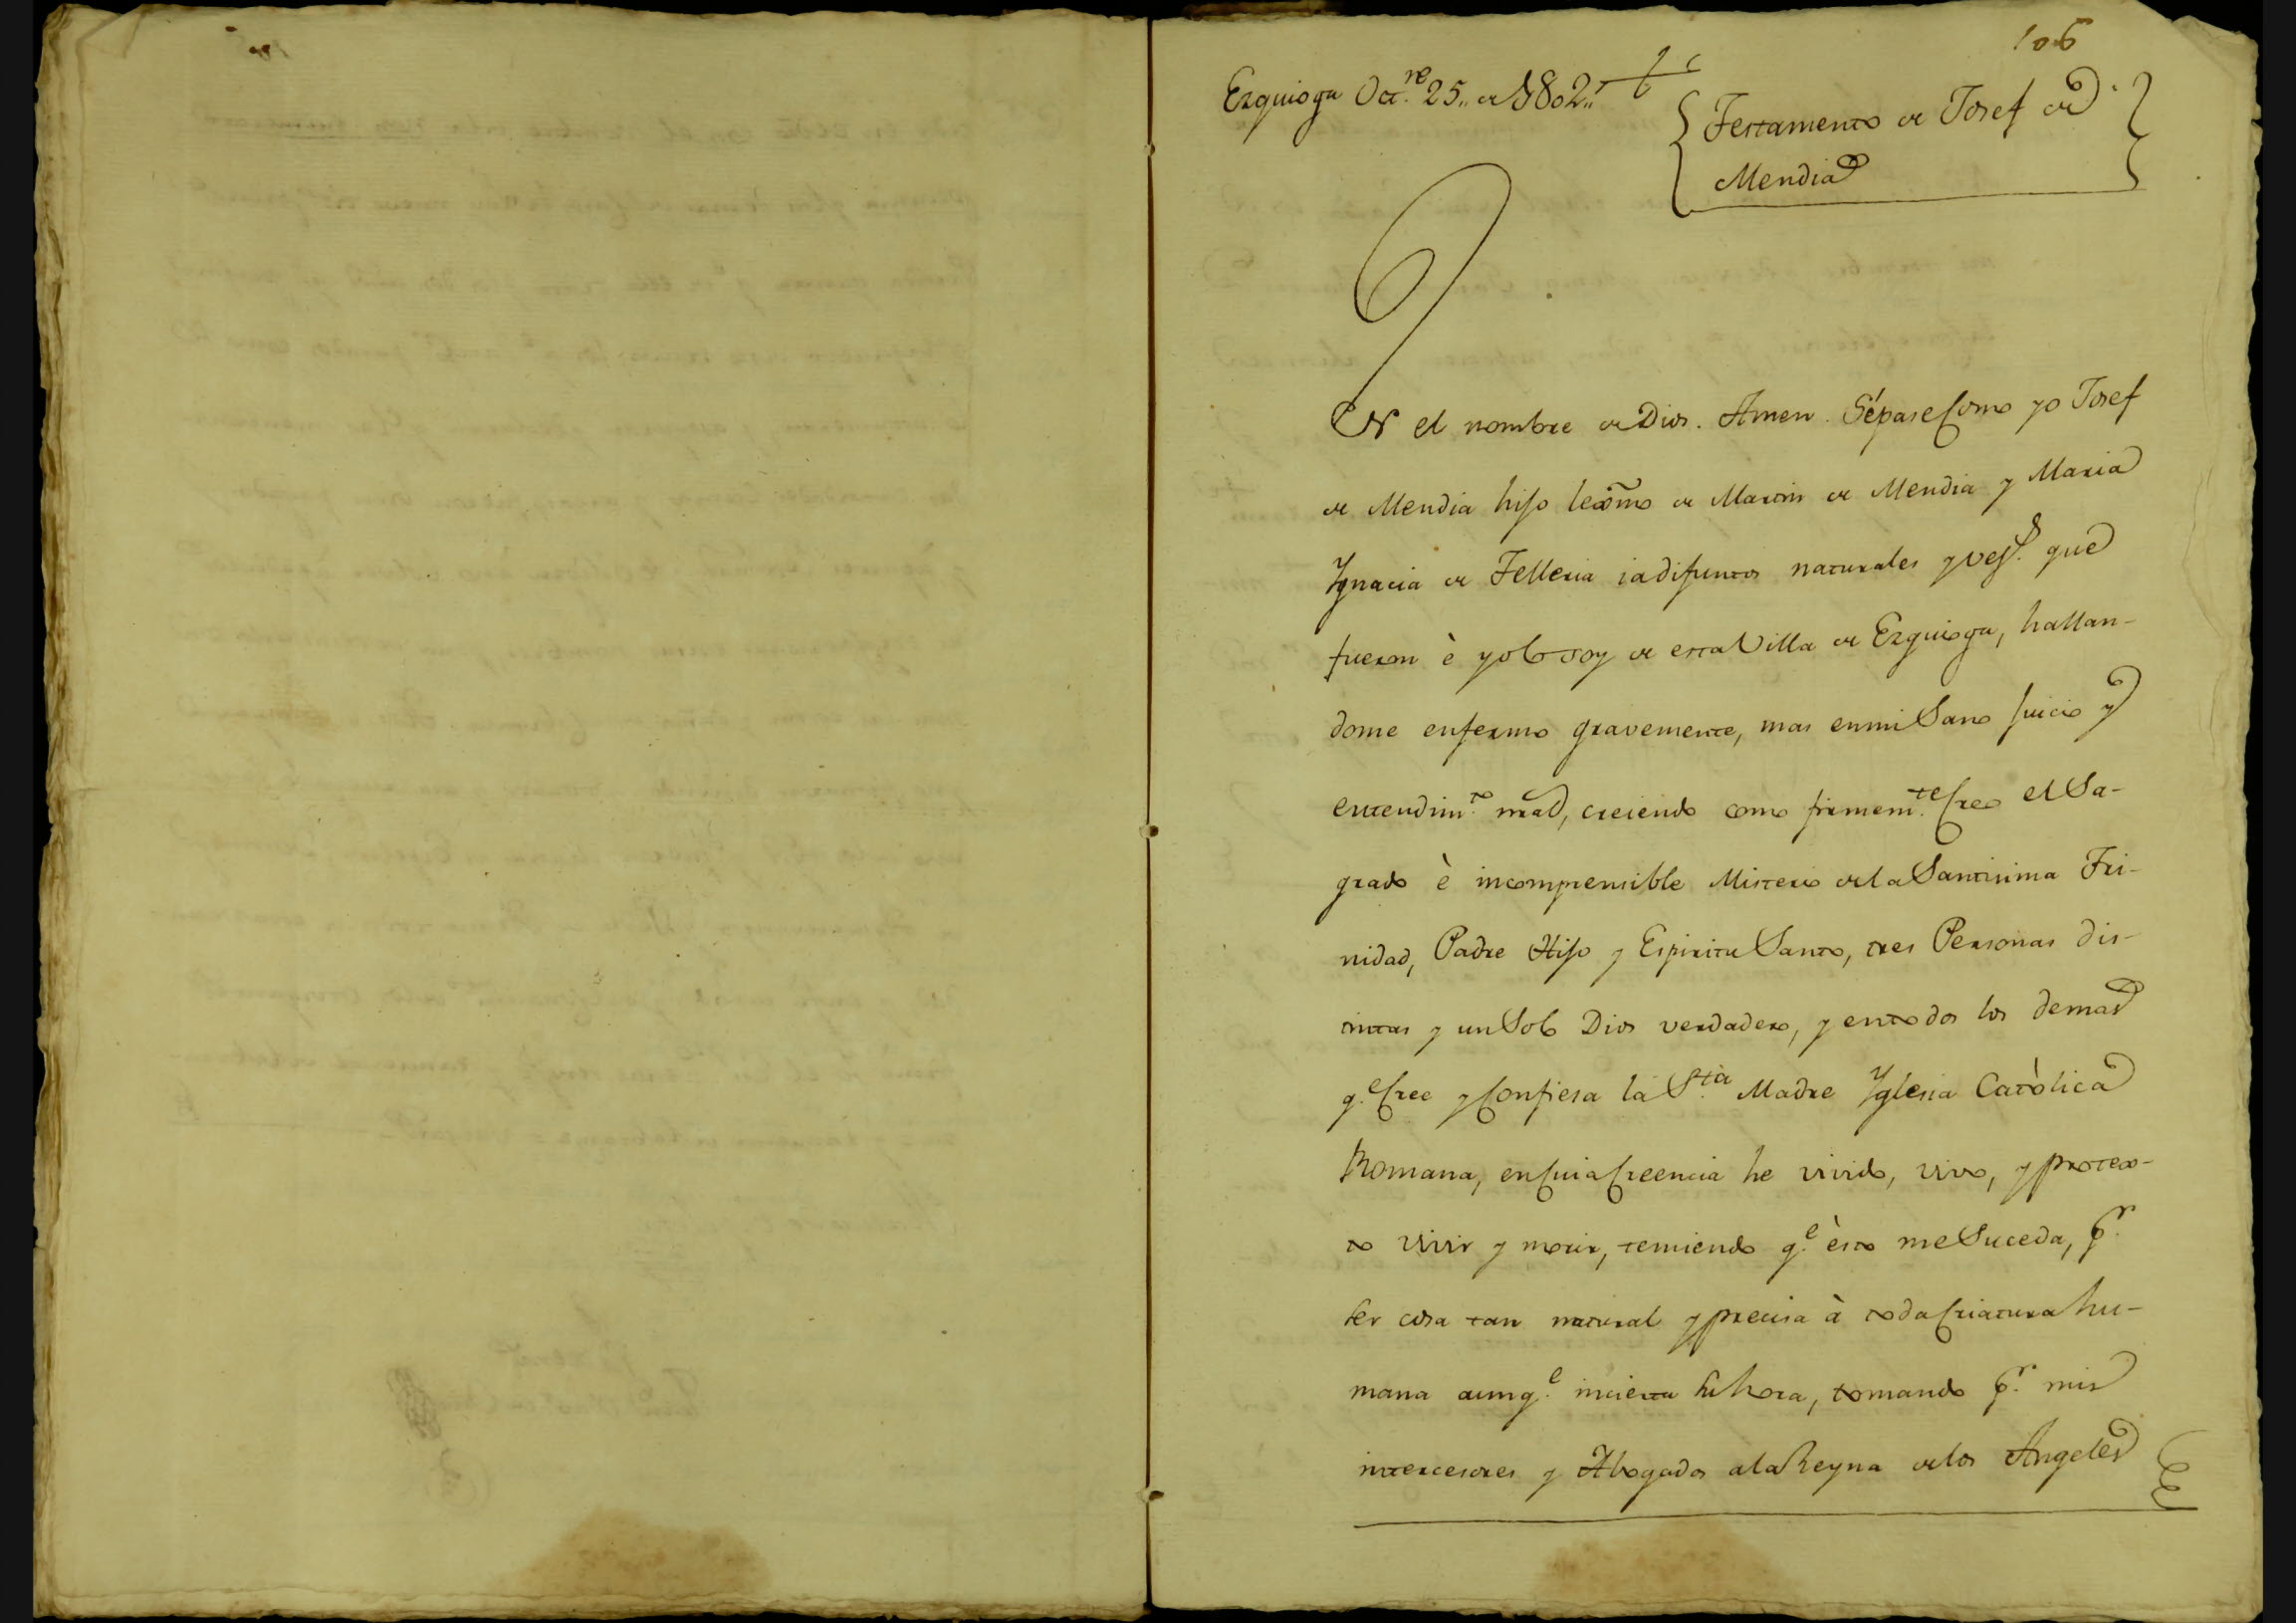 106
Ezquioga Oct.re 25,, de 1802,,
Testamento de Josef de
Mendia
En el nombre de Dios. Amen. Sépase como yo Josef
de Mendia hijo lexmo de Martin de Mendia y Maria
Ygnacia de Telleria ia difuntos naturales y vez.s que
fueron è yo lo soy de esta Villa de Ezquioga, hallan-
dome enfermo gravemente, mas en mi Sano juicio y
entendim.to nral, creiendo como firmem.te Creo el Sa-
grado è incomprensible Misterio de la Santisima Tri-
nidad, Padre Hijo y Espiritu Santo, tres Personas dis-
tintas y un Solo Dios verdadero, y en todos los demas
q.e Cree y Confiesa la S.ta Madre Yglesia Catòlica
Romana, en Cuia Creencia he vivido, vivo, y protex-
to vivir y morir, temiendo q.e èsto me Suceda, p.r
ser cosa tan natural y precisa à toda Criatura hu-
mana aunq.e incierta su hora, tomando p.r mis
intercesores y Abogados a la Reyna de los Angeles